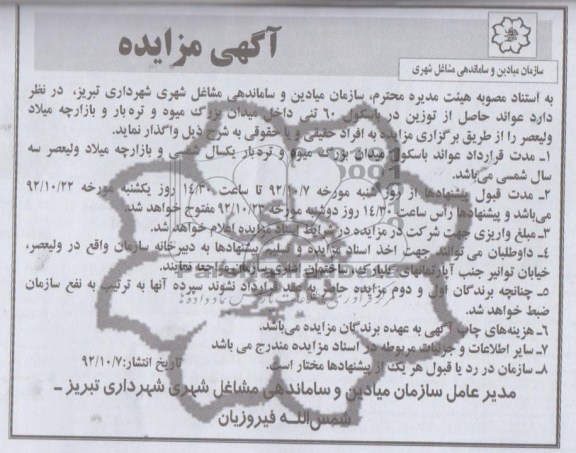 آگهی مزایده
سازمان میادین و ساماندهی مشاغل شهری
به استناد مصوبه هیئت مدیره محترم، سازمان میادین و ساماندهی مشاغل شهری شهرداری تبریز، در نظر
دارد عوائد حاصل از توزین در باسکول ۶۰ تنی داخل میدان بزرگ میوه و تره بار و بازارچه میلاد
ولیعصر را از طریق برگزاری مزایده به افراد حقیقی و یا حقوقی به شرح ذیل واگذار نماید.
۱ـ مدت قرارداد عوائد باسکول میدان بزرگ میوه و تره بار یکسال شمسی و بازارچه میلاد ولیعصر سه
سال شمسی می‌باشد.
۲ـ مدت قبول پیشنهادها از روز شنبه مورخه ۹۲/۱۰/۷ تا ساعت ۱۴/۳۰ روز یکشنبه مورخه ۹۲/۱۰/۲۲
می‌باشد و پیشنهادها رأس ساعت ۱۴/۳۰ روز دوشنبه مورخه ۹۲/۱۰/۲۳ مفتوح خواهد شد.
۳ـ مبلغ واریزی جهت شرکت در مزایده در شرایط اسناد مزایده اعلام خواهد شد.
۴ـ داوطلبان می توانند جهت اخذ اسناد مزایده و تسلیم پیشنهادها به دبیرخانه سازمان واقع در ولیعصر،
خیابان توانیر جنب آپارتمانهای پلیارک، ساختمان اداری سازمان مراجعه نمایند.
۵ـ چنانچه برندگان اول و دوم مزایده حاضر به عقد قرارداد نشوند سپرده آنها به ترتیب به نفع سازمان
ضبط خواهد شد.
۶ـ هزینه‌های چاپ آگهی به عهده برندگان مزایده می‌باشد.
۷ـ سایر اطلاعات و جزئیات مربوطه در اسناد مزایده مندرج می باشد
۸ـ سازمان در رد یا قبول هر یک از پیشنهادها مختار است. تاریخ انتشار:۹۲/۱۰/۷
مدیر عامل سازمان میادین و ساماندهی مشاغل شهری شهرداری تبریز ـ
شمس‌الله فیروزیان